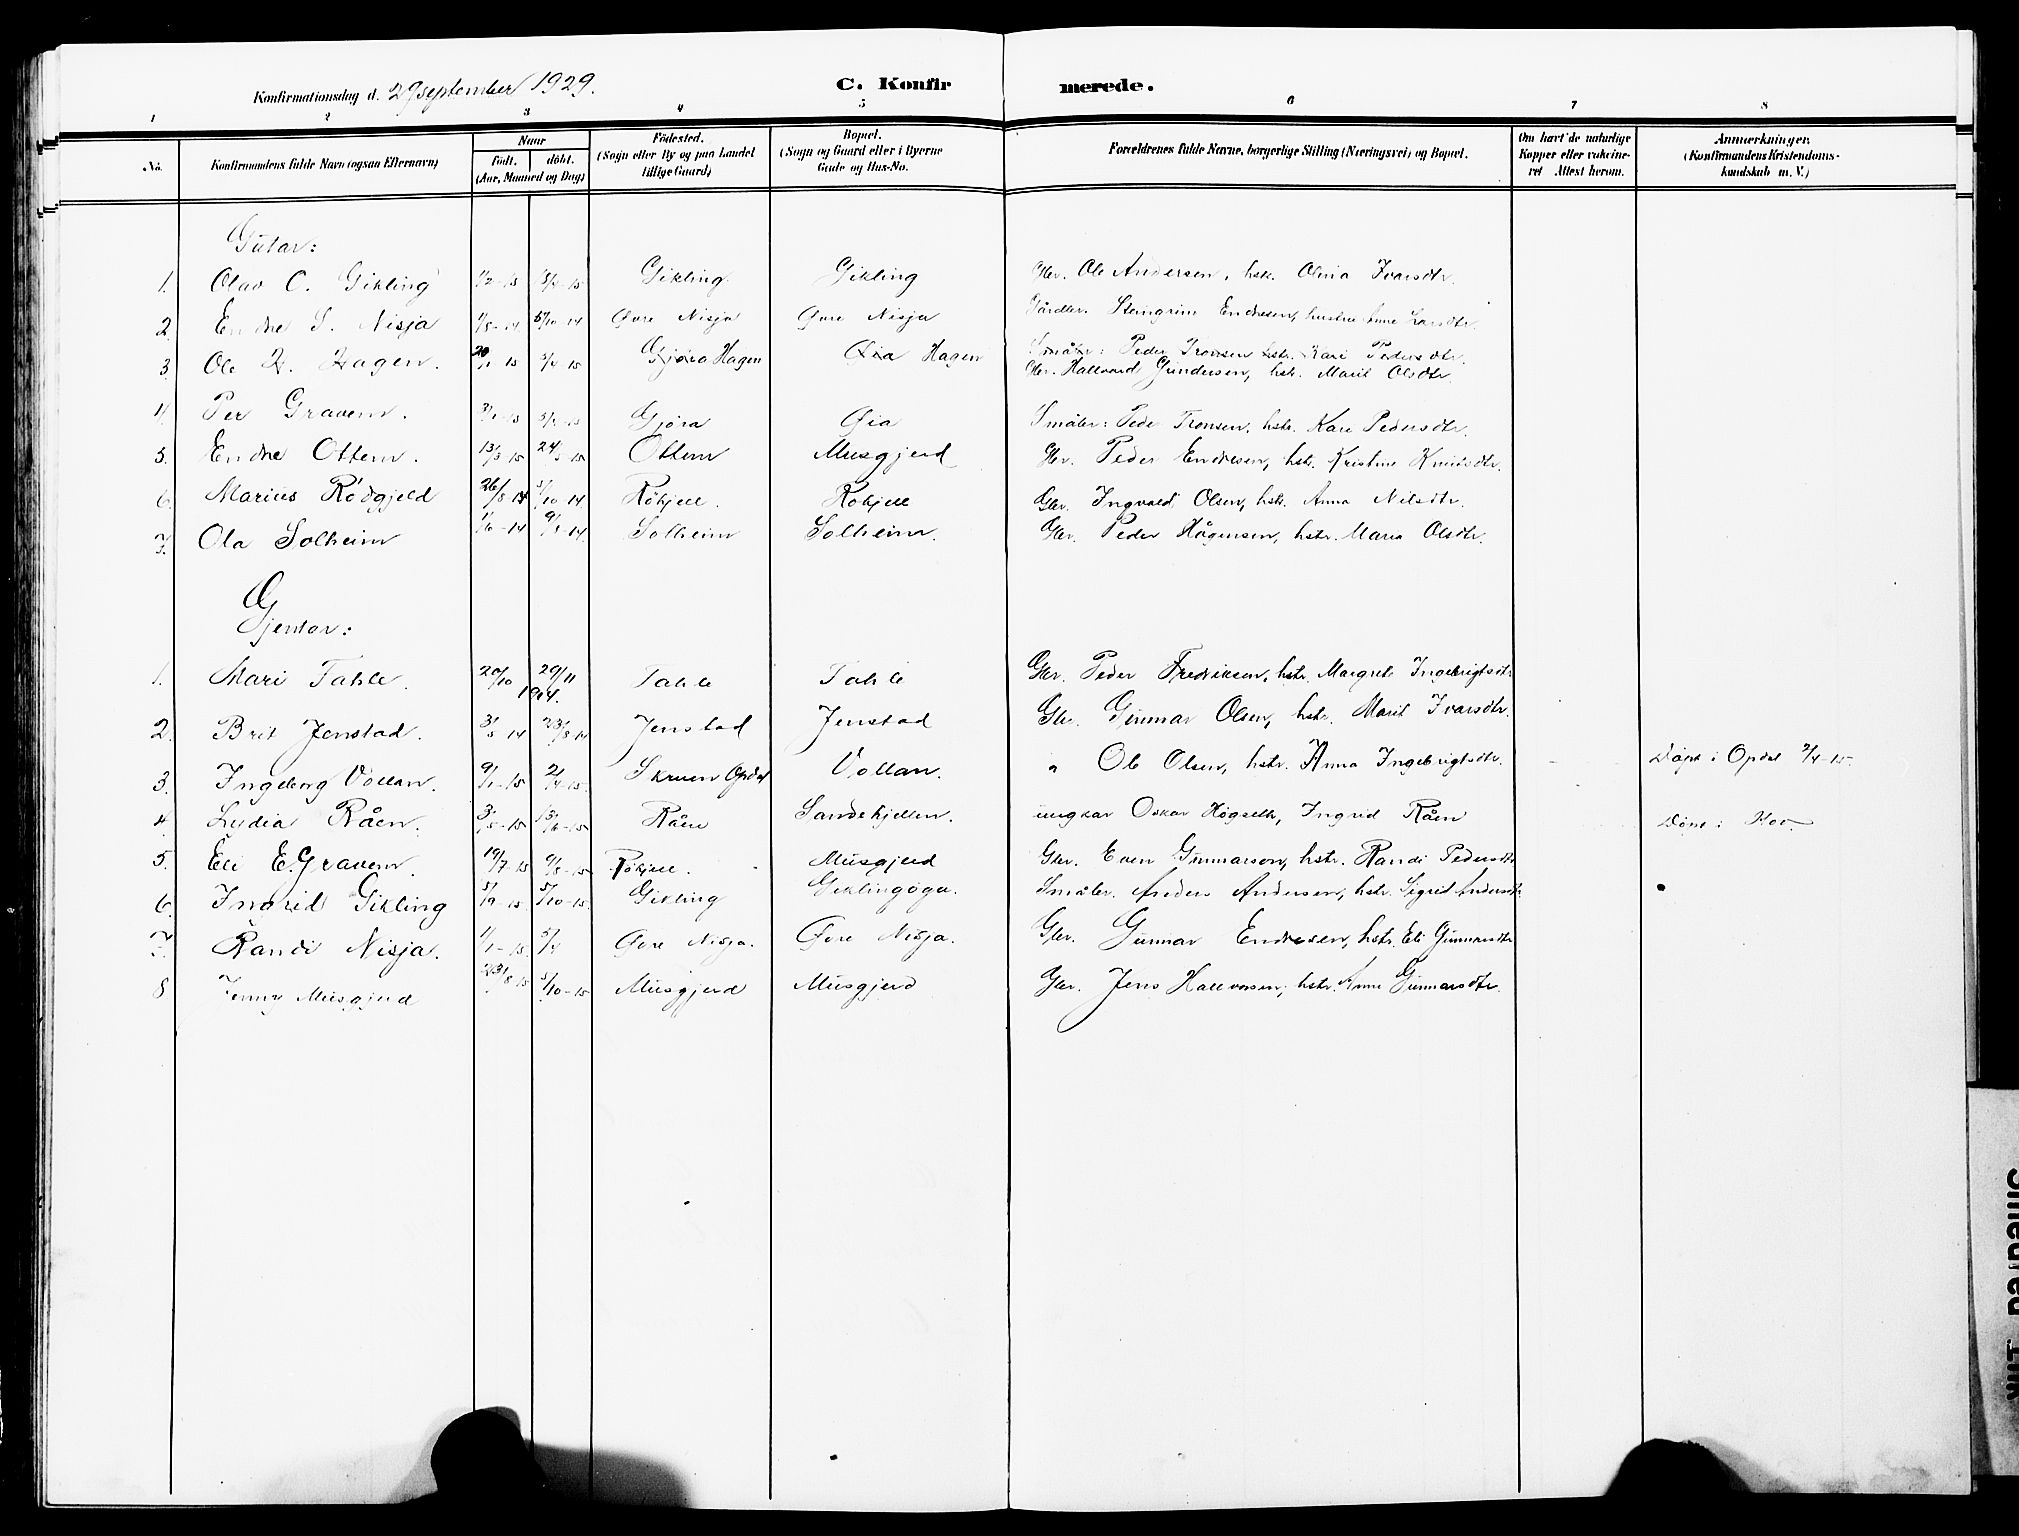 Konfirmationsdag d. 29 september 1929. C. Konfir merede.
1 2 3 4 5 6 7 8
No. Konfirmandens fulde Navn (ogsaa Efternavn) Naar födt. döbt. (Aar, Maaned og Dag) Födested. (Sogn eller By og paa Landet tillige Gaard) Bopæl. (Sogn og Gaard eller i Byerne Gade og Hus-No. Forældrenes fulde Navne, borgerlige Stilling (Næringsvei) og Bopæl. Om havt de naturlige Kopper eller vakcineret Attest herom. Anmærkninger. (Konfirmandens Kristendomskundskab m. V.)
Gutar:
1. Olav O. Gikling 1/2-15 5/4-15 Gikling Gikling Gbr. Ole Andersen, hstr. Olina Ivarsdtr.
2. Endre S. Nisja 1/8-14 5/10 14 Øvre Nisja Øvre Nisja Gårdbr. Steingrim Endresen, hustru Anne Larsdtr.
3. Ole H. Hagen 20/1 15 5/4 15 Gjøra Hagen Øia Hagen Småbr: Peder Tronsen hstr. Kari Pedersdtr.
Gbr. Hallvard Gundersen, hstr. Marit Olsdtr.
4. Per Gravem. 3/1-15 5/4-15 Gjøra Øia Småbr: Peder Tronsen, hstr. Kari Pedersdtr.
5. Endre Ottem. 13/3 15 24/5-15 Ottem Musgjerd Gbr. Peder Endresen, hstr. Kristine Knudsdtr.
6. Marius Rödgjeld 26/8 14 5/10-14 Røkjell. Rokjell Gbr. Ingvald Olsen, hstr. Anna Nilsdtr.
7. Ola Solheim 1/6-14 9/8-14. Solheim Solheim. Gbr. Peder Hågensen, hstr. Maria Olsdtr.
Gjentor:
1. Mari Tahle. 20/10 29/11 1914. Tahle Tahle Gbr. Peder Fredriksen, hstr. Margrete Ingebrigtsdtr
2. Brit Jenstad. 3/5 14 23/8-14 Jenstad Jenstad Gbr. Gunnar Olsen, hstr. Marit Ivarsdtr.
3. Ingeborg Vollan. 9/1-15 2/4-15. Skruen Opdal Vollan. " Ole Olsen, hstr. Anna Ingebrigtsdtr. Döpt i Opdal 2/4-15.
4. Lydia Råen. 3/5-15 13/6-15 Råen Sandekjellen. ungkar Oskar Högseth, Ingrid Råen Döpt i Hov
5. Eli E. Gravem. 19/7 15 9/8-15 Røkjell. Musgjerd Gbr. Even Gunnarson, hstr. Randi Pedersdtr
6. Ingrid Gikling 5/9-15. 5/10-15. Gikling Giklingöga. Småbr. Anders Andersen, hstr. Sigrid Andersdtr.
7. Randi Nisja. 1/1-15. 5/4 Øvre Nisja. Øvre Nisja. Gbr. Gunnar Endresen, hstr. Eli Gunnarsdtr
8 Jenny Musgjerd 23/8 15 5/10-15 Musgjerd Musgjerd Gbr. Jens Hallvorsen, hstr. Anne Gunnarsdtr.